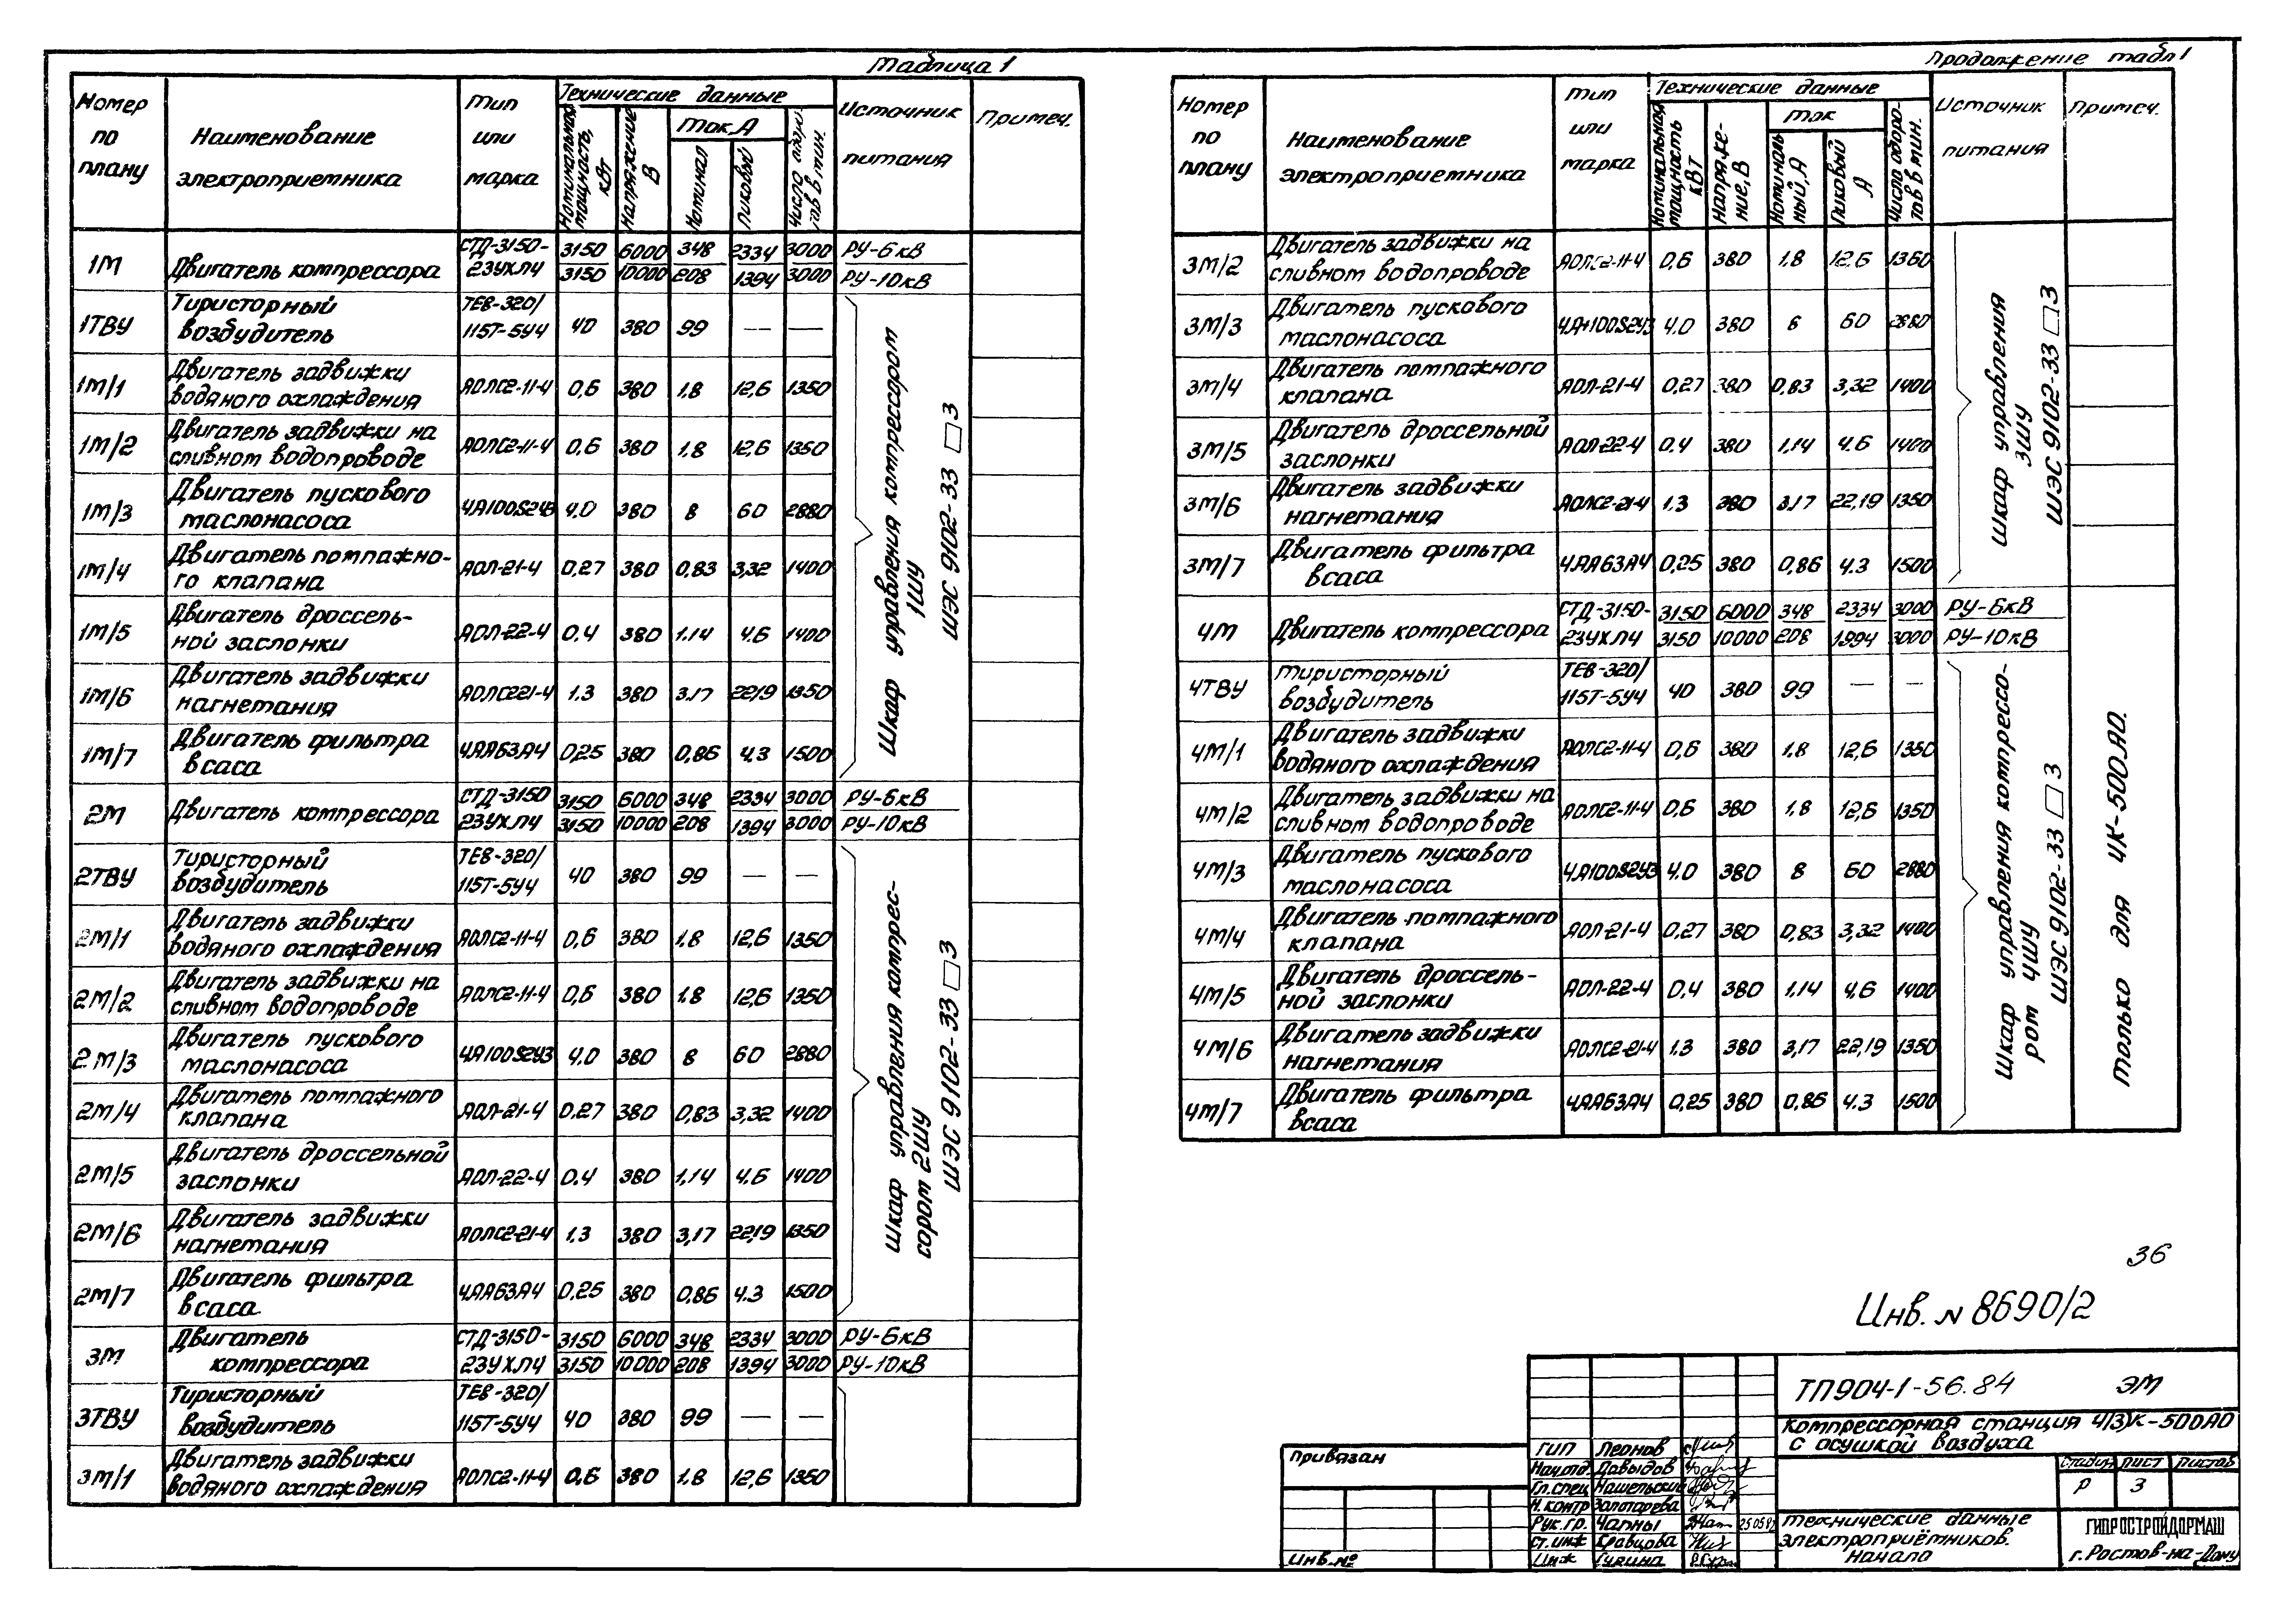 Таблица 1
Номер по плану | Наименование электроприемника | Тип или марка | Технические данные | Источник питания | Примеч.
Номинальная мощность, кВт | Напряжение В | Ток, А | Число оборотов в мин.
Номинал | пиковый
1М | Двигатель компрессора | СТД-3150-23УХЛ4 | 3150 3150 | 6000 10000 | 348 208 | 2334 1394 | 3000 3000 | РУ-6кВ РУ-10кВ
1ТВУ | Тиристорный возбудитель | ТЕ8-320/115Т-5У4 | 40 | 380 | 99 | — | —
1М/1 | Двигатель задвижки водяного охлаждения | АОЛС2-11-4 | 0,6 | 380 | 1.8 | 12,6 | 1350
1М/2 | Двигатель задвижки на сливном водопроводе | АОЛС2-11-4 | 0,6 | 380 | 1.8 | 12,6 | 1350
1М/3 | Двигатель пускового маслонасоса | 4А100S2У3 | 4.0 | 380 | 8 | 60 | 2880
1М/4 | Двигатель помпажного клапана | АОЛ-21-4 | 0,27 | 380 | 0,83 | 3,32 | 1400
1М/5 | Двигатель дроссельной заслонки | АОЛ-22-4 | 0,4 | 380 | 1.14 | 4.6 | 1400
1М/6 | Двигатель задвижки нагнетания | АОЛС221-4 | 1.3 | 380 | 3.17 | 22,19 | 1350
1М/7 | Двигатель фильтра всаса | 4АА63А4 | 0,25 | 380 | 0,86 | 4.3 | 1500
Шкаф управления компрессором 1ШУ ШЭС 9102-33 □ 3
2М | Двигатель компрессора | СТД-3150 23УХЛ4 | 3150 3150 | 6000 10000 | 348 208 | 2334 1394 | 3000 3000 | РУ-6кВ РУ-10кВ
2ТВУ | Тиристорный возбудитель | ТЕ8-320/115Т-5У4 | 40 | 380 | 99 | — | —
2М/1 | Двигатель задвижки водяного охлаждения | АОЛС2-11-4 | 0,6 | 380 | 1.8 | 12,6 | 1350
2М/2 | Двигатель задвижки на сливном водопроводе | АОЛС2-11-4 | 0,6 | 380 | 1.8 | 12,6 | 1350
2М/3 | Двигатель пускового маслонасоса | 4А100S2У3 | 4.0 | 380 | 8 | 60 | 2880
2М/4 | Двигатель помпажного клапана | АОЛ-21-4 | 0,27 | 380 | 0,83 | 3,32 | 1400
2М/5 | Двигатель дроссельной заслонки | АОЛ-22-4 | 0.4 | 380 | 1,14 | 4.6 | 1400
2М/6 | Двигатель задвижки нагнетания | АОЛС2-21-4 | 1.3 | 380 | 3,17 | 22,19 | 1350
2М/7 | Двигатель фильтра всаса | 4АА63А4 | 0,25 | 380 | 0,86 | 4.3 | 1500
Шкаф управления компрессором 2ШУ ШЭС 9102-33 □ 3
3М | Двигатель компрессора | СТД-3150-23УХЛ4 | 3150 3150 | 6000 10000 | 348 208 | 2334 1394 | 3000 3000 | РУ-6кВ РУ-10кВ
3ТВУ | Тиристорный возбудитель | ТЕ8-320/115Т-5У4 | 40 | 380 | 99 | — | —
3М/1 | Двигатель задвижки водяного охлаждения | АОЛС2-11-4 | 0,6 | 380 | 1.8 | 12,6 | 1350
Продолжение табл 1
Номер по плану | Наименование электроприемника | Тип или марка | Технические данные | Источник питания | Примеч.
Номинальная мощность кВт | Напряжение, В | Ток | Число оборотов в мин.
Номинальный, А | Пиковый А
3М/2 | Двигатель задвижки на сливном водопроводе | АОЛС2-11-4 | 0,6 | 380 | 1.8 | 12,6 | 1350
3М/3 | Двигатель пускового маслонасоса | 4А100S2У3 | 4.0 | 380 | 8 | 60 | 2880
3М/4 | Двигатель помпажного клапана | АОЛ-21-4 | 0,27 | 380 | 0,83 | 3,32 | 1400
3М/5 | Двигатель дроссельной заслонки | АОЛ-22-4 | 0.4 | 380 | 1,14 | 4.6 | 1400
3М/6 | Двигатель задвижки нагнетания | АОЛС2-21-4 | 1.3 | 380 | 3.17 | 22,19 | 1350
3М/7 | Двигатель фильтра всаса | 4АА63А4 | 0,25 | 380 | 0,86 | 4.3 | 1500
Шкаф управления 3ШУ ШЭС 9102-33 □ 3
4М | Двигатель компрессора | СТД-3150-23УХЛ4 | 3150 3150 | 6000 10000 | 348 208 | 2334 1394 | 3000 3000 | РУ-6кВ РУ-10кВ
4ТВУ | Тиристорный возбудитель | ТЕ8-320/115Т-5У4 | 40 | 380 | 99 | — | —
4М/1 | Двигатель задвижки водяного охлаждения | АОЛС2-11-4 | 0,6 | 380 | 1.8 | 12,6 | 1350
4М/2 | Двигатель задвижки на сливном водопроводе | АОЛС2-11-4 | 0,6 | 380 | 1.8 | 12,6 | 1350
4М/3 | Двигатель пускового маслонасоса | 4А100S2У3 | 4.0 | 380 | 8 | 60 | 2880
4М/4 | Двигатель помпажного клапана | АОЛ-21-4 | 0,27 | 380 | 0,83 | 3,32 | 1400
4М/5 | Двигатель дроссельной заслонки | АОЛ-22-4 | 0,4 | 380 | 1,14 | 4.6 | 1400
4М/6 | Двигатель задвижки нагнетания | АОЛС2-21-4 | 1.3 | 380 | 3,17 | 22,19 | 1350
4М/7 | Двигатель фильтра всаса | 4АА63А4 | 0,25 | 380 | 0,86 | 4.3 | 1500
Шкаф управления компрессором 4ШУ ШЭС 9102-33 □ 3
Только для 4К-500.АО.
36
Инв. N 8690/2
ТП904-1-56.84 ЭМ
Компрессорная станция 4(3)К-500АО
с осушкой воздуха
Привязан
Инв.№
ГИП Леонов
Нач.отд Давыдов
Гл.спец Нашельский
Н.контр Золотарева
Рук.гр. Чапны
Ст.инж Кравцова
Инж Гурина
Стадия Лист Листов
Р 3
Технические данные
электроприёмников.
Начало
ГИПРОСТРОЙДОРМАШ
г.Ростов-на-Дону